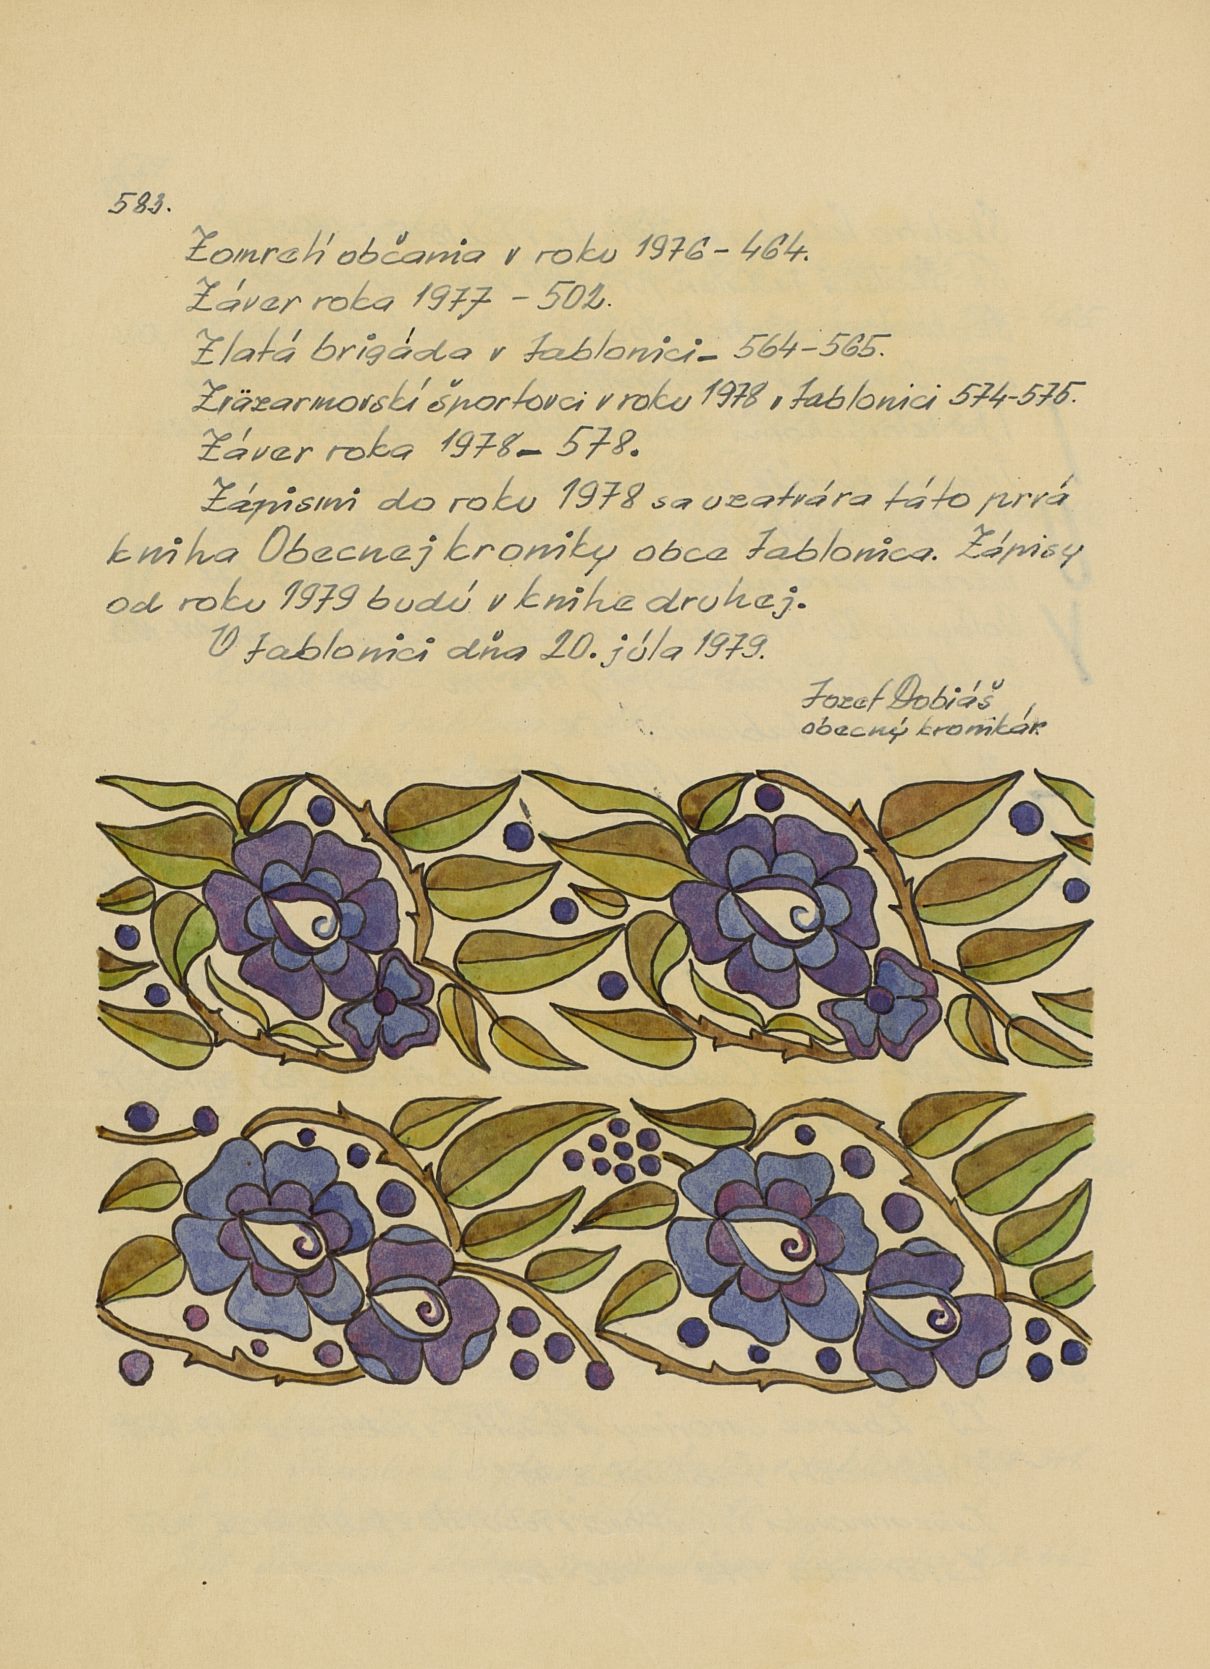 583.
Zomrelí občania v roku 1976 - 464.
Záver roka 1977 - 502.
Zlatá brigáda v Jablonici - 564-565.
Zväzarmovskí športovci v roku 1978 v Jablonici 574-575.
Záver roka 1978 - 578.
Zápismi do roku 1978 sa uzatvára táto prvá
kniha Obecnej kroniky obce Jablonica. Zápisy
od roku 1979 budú v knihe druhej.
V Jablonici dňa 20. júla 1979.
Jozef Dobiáš
obecný kronikár.